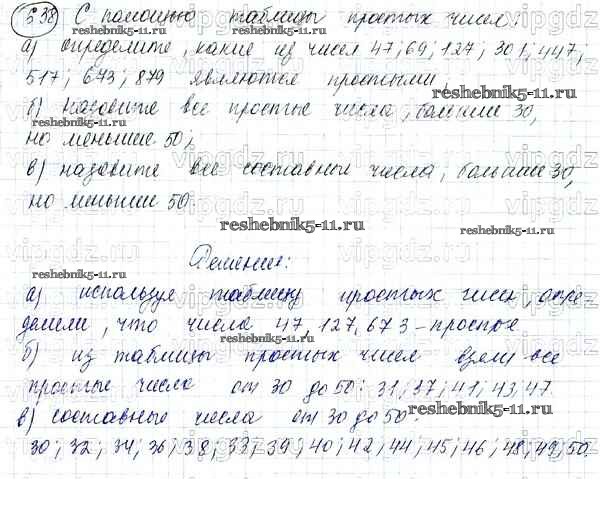 538 С помощью таблицы простых чисел:
а) определите, какие из чисел 47; 69; 127; 301; 447;
517; 673; 879 являются простыми;
б) назовите все простые числа, больше 30,
reshebnik5-11.ru
но меньше 50;
в) назовите все составные числа, больше 30,
но меньше 50.
reshebnik5-11.ru
Решение:
reshebnik5-11.ru
а) используя таблицу простых чисел, опре
делили, что числа 47, 127, 673 - простые
б) из таблицы простых чисел взяли все
простые числа от 30 до 50: 31; 37; 41; 43; 47.
reshebnik5-11.ru
в) составные числа от 30 до 50:
reshebnik5-11.ru
30; 32; 34; 36; 38; 33; 39; 40; 42; 44; 45; 46; 48; 49; 50.